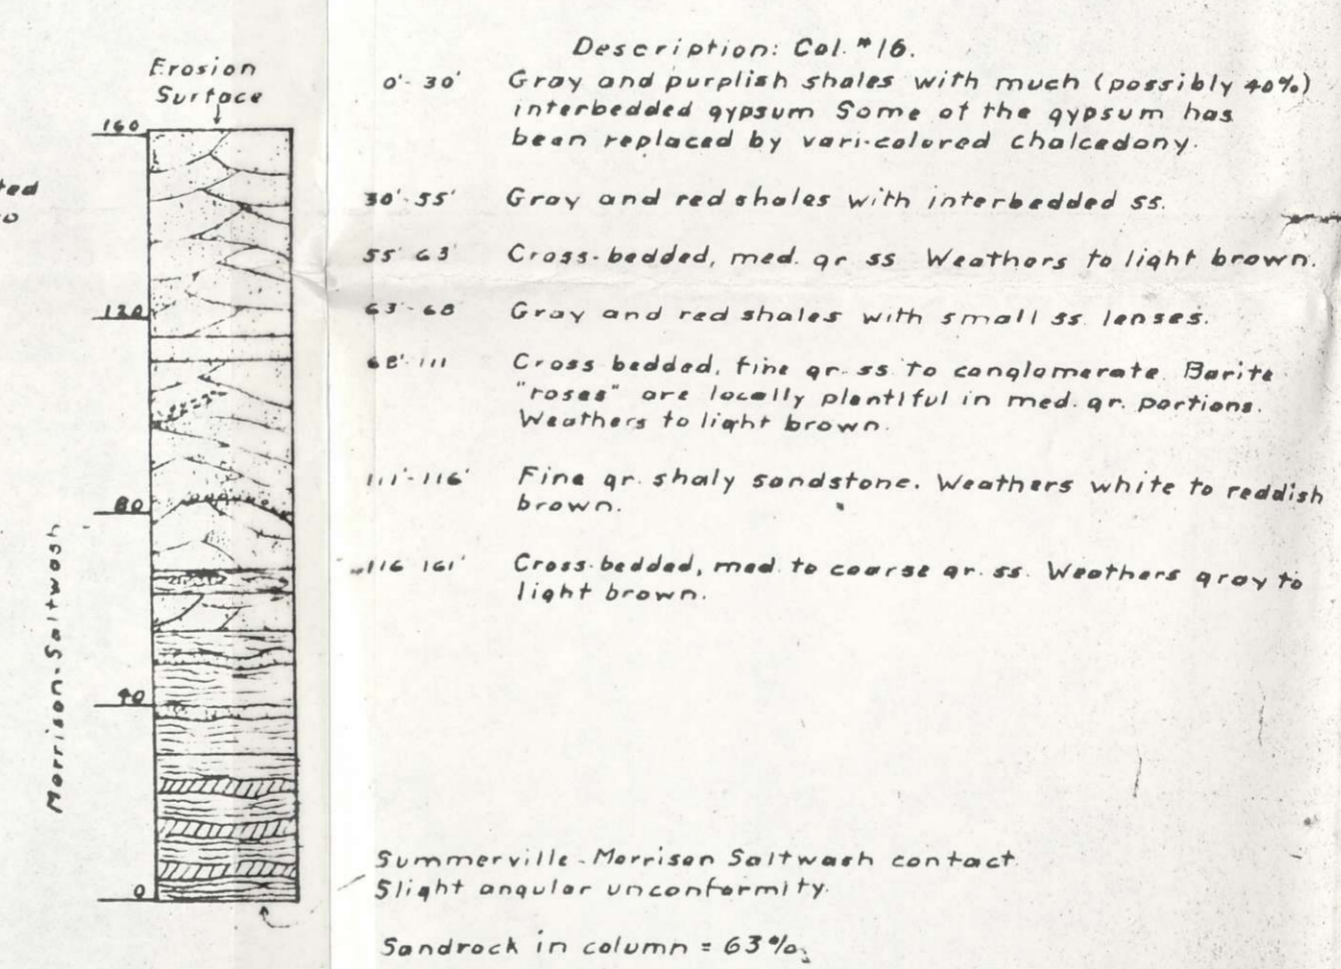 Description: Col. #16.
Erosion
Surface
0'- 30' Gray and purplish shales with much (possibly 40%)
interbedded gypsum Some of the gypsum has
been replaced by vari-colored chalcedony.
160
ted
30'-55' Gray and red shales with interbedded ss.
55' 63' Cross-bedded, med. gr ss Weathers to light brown.
120
63'-68' Gray and red shales with small ss lenses.
68'-111 Cross bedded, fine gr. ss to conglomerate. Barite
"roses" are locally plentiful in med. gr. portions.
Weathers to light brown.
111'-116' Fine gr. shaly sandstone. Weathers white to reddish
brown.
80
116 161' Cross-bedded, med. to coarse gr. ss. Weathers gray to
light brown.
Morrison-Saltwash
40
0
Summerville-Morrison Saltwash contact
Slight angular unconformity.
Sandrock in column = 63%.